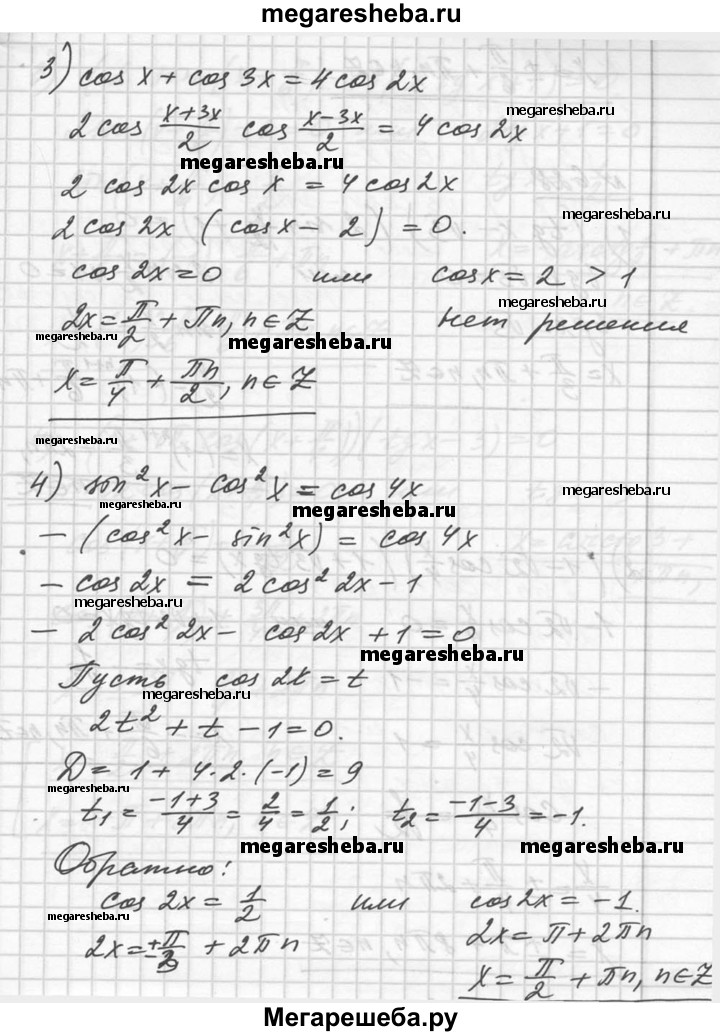 megaresheba.ru
3) cos x + cos 3x = 4 cos 2x
2 cos (x+3x)/2 cos (x-3x)/2 = 4 cos 2x
megaresheba.ru
megaresheba.ru
2 cos 2x cos x = 4 cos 2x
2 cos 2x (cos x - 2) = 0.
megaresheba.ru
cos 2x = 0 или cos x = 2 > 1
megaresheba.ru
2x = π/2 + πn, n ∈ Z нет решения
megaresheba.ru
megaresheba.ru
x = π/4 + πn/2, n ∈ Z
megaresheba.ru
4) sin²x - cos²x = cos 4x
megaresheba.ru
megaresheba.ru
- (cos²x - sin²x) = cos 4x
- cos 2x = 2 cos² 2x - 1
megaresheba.ru
- 2 cos² 2x - cos 2x + 1 = 0
megaresheba.ru
Пусть cos 2x = t
megaresheba.ru
2t² + t - 1 = 0.
D = 1 + 4·2·(-1) = 9
megaresheba.ru
t₁ = (-1+3)/4 = 2/4 = 1/2; t₂ = (-1-3)/4 = -1.
megaresheba.ru
megaresheba.ru
Обратно:
cos 2x = 1/2 или cos 2x = -1.
megaresheba.ru
2x = ±π/3 + 2πn 2x = π + 2πn
x = π/2 + πn, n ∈ Z
Мегарешеба.ру